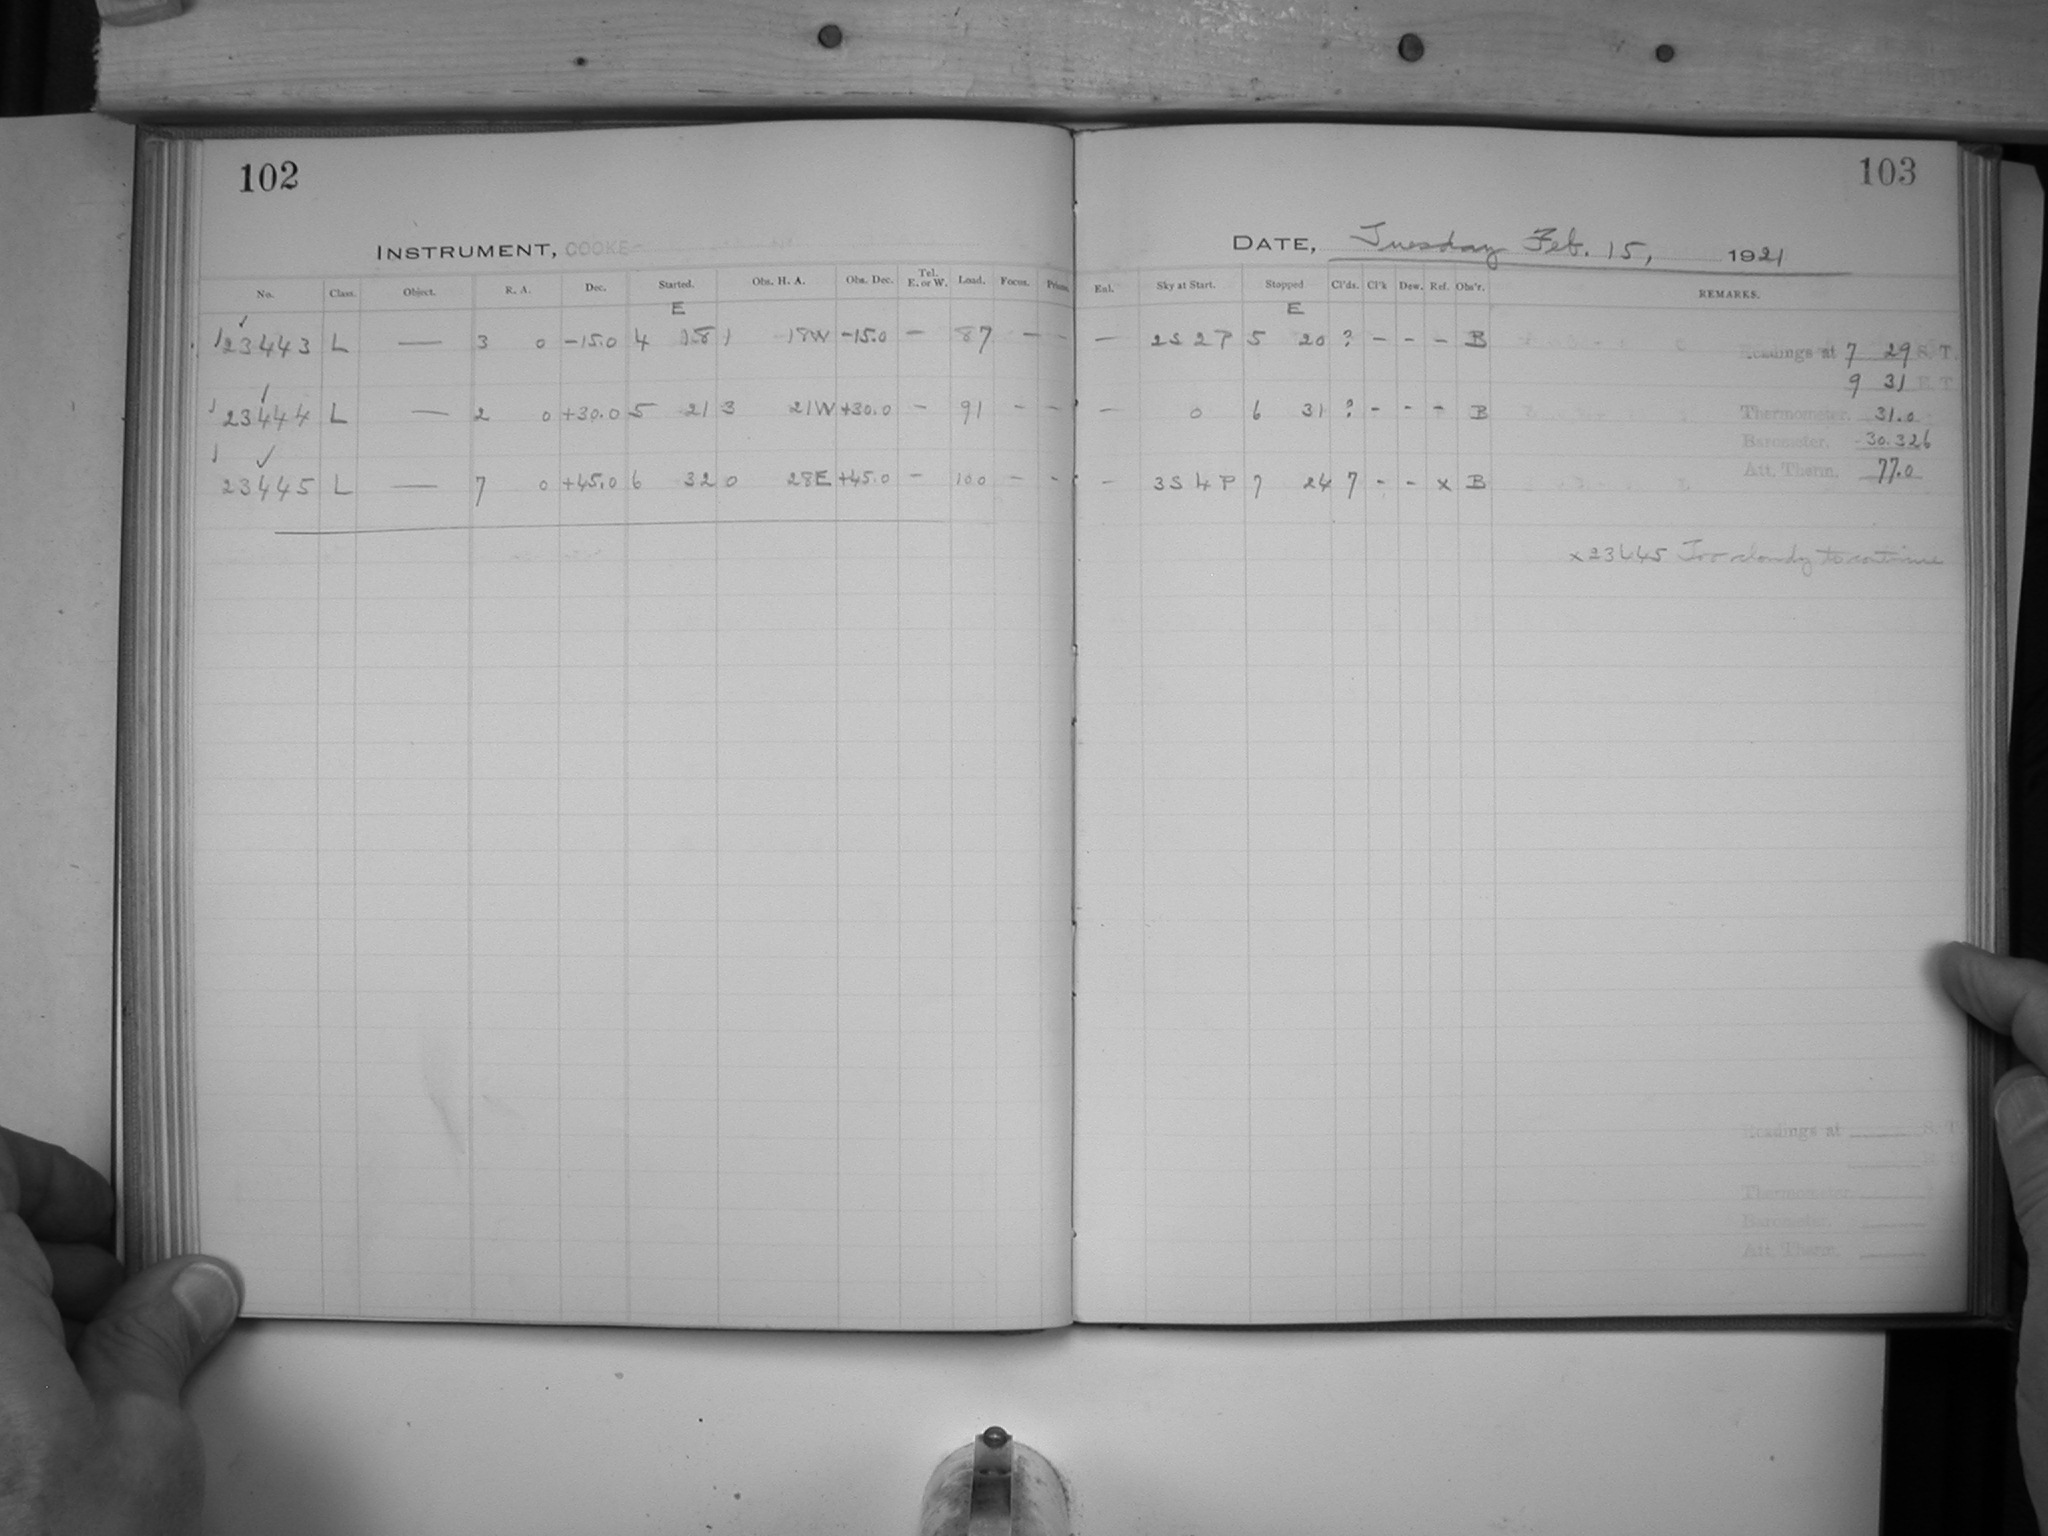 102
INSTRUMENT, COOKE
No. Class. Object. R. A. Dec. Started. Obs. H. A. Obs. Dec. Tel. E. or W. Load. Focus. Prisms
E
23443 L — 3 0 -15.0 4 18 1 18W -15.0 - 87 - -
23444 L — 2 0 +30.0 5 21 3 21W +30.0 - 91 - -
23445 L — 7 0 +45.0 6 32 0 28E +45.0 - 100 - -
103
DATE, Tuesday Feb. 15, 1921
Enl. Sky at Start. Stopped Cl'ds. Cl'k Dew. Ref. Obs'r. REMARKS.
E
— 2S 2P 5 20 ? - - - B
— 0 6 31 ? - - - B
- 3S 4P 7 24 7 - - x B
Readings at 7 29 S. T.
9 31 E. T.
Thermometer. 31.0
Barometer. 30.326
Att. Therm. 77.0
x23445 Too cloudy to continue
Readings at S. T.
Thermometer.
Barometer.
Att. Therm.